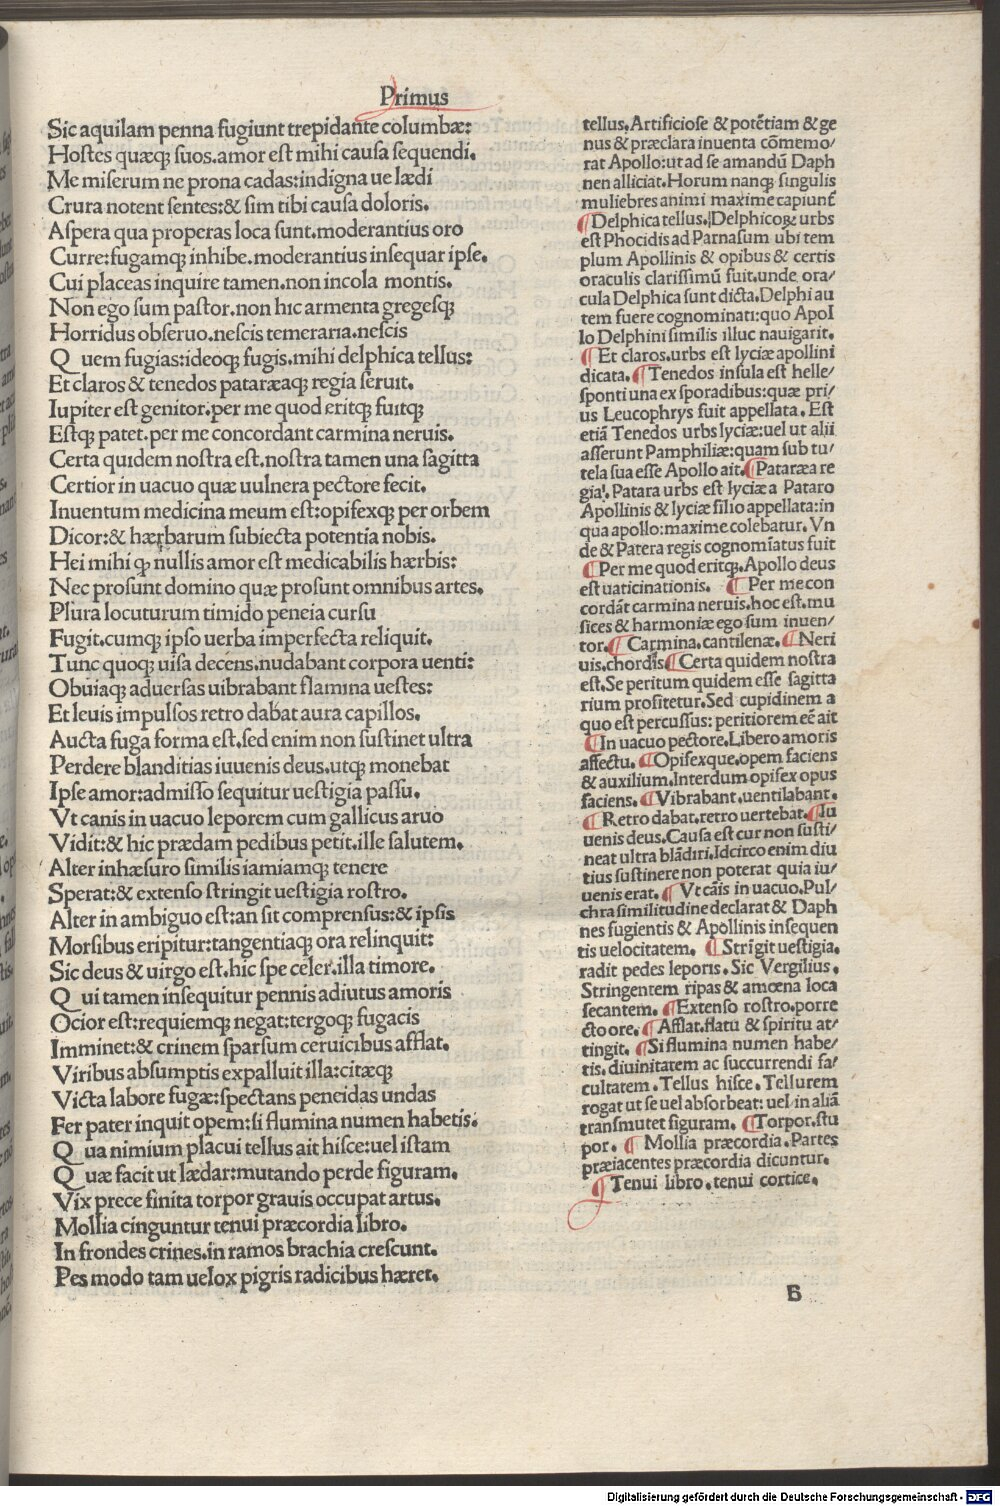 Primus
Sic aquilam penna fugiunt trepidante columbæ:
Hostes quæqꝫ suos.amor est mihi causa sequendi.
Me miserum ne prona cadas:indigna ue lædi
Crura notent sentes:& sim tibi causa doloris.
Aspera qua properas loca sunt.moderantius oro
Curre:fugamqꝫ inhibe.moderantius insequar ipse.
Cui placeas inquire tamen.non incola montis.
Non ego sum pastor.non hic armenta gregesqꝫ
Horridus obseruo.nescis temeraria.nescis
Q uem fugias:ideoqꝫ fugis.mihi delphica tellus:
Et claros & tenedos pataræaqꝫ regia seruit.
Iupiter est genitor.per me quod eritqꝫ fuitqꝫ
Estqꝫ patet.per me concordant carmina neruis.
Certa quidem nostra est.nostra tamen una sagitta
Certior in uacuo quæ uulnera pectore fecit.
Inuentum medicina meum est:opifexqꝫ per orbem
Dicor:& hærbarum subiecta potentia nobis.
Hei mihi qꝫ nullis amor est medicabilis hærbis:
Nec prosunt domino quæ prosunt omnibus artes.
Plura locuturum timido peneia cursu
Fugit.cumqꝫ ipso uerba imperfecta reliquit.
Tunc quoqꝫ uisa decens.nudabant corpora uenti:
Obuiaqꝫ aduersas uibrabant flamina uestes:
Et leuis impulsos retro dabat aura capillos.
Aucta fuga forma est.sed enim non sustinet ultra
Perdere blanditias iuuenis deus.utqꝫ monebat
Ipse amor:admisso sequitur uestigia passu.
Vt canis in uacuo leporem cum gallicus aruo
Vidit:& hic prædam pedibus petit.ille salutem.
Alter inhæsuro similis iamiamqꝫ tenere
Sperat:& extenso stringit uestigia rostro.
Alter in ambiguo est:an sit comprensus:& ipsis
Morsibus eripitur:tangentiaqꝫ ora relinquit:
Sic deus & uirgo est.hic spe celer.illa timore.
Q ui tamen insequitur pennis adiutus amoris
Ocior est:requiemqꝫ negat:tergoqꝫ fugacis
Imminet:& crinem sparsum ceruicibus afflat.
Viribus absumptis expalluit illa:citæqꝫ
Victa labore fugæ:spectans peneidas undas
Fer pater inquit opem:si flumina numen habetis:
Q ua nimium placui tellus ait hisce:uel istam
Q uæ facit ut lædar:mutando perde figuram.
Vix prece finita torpor grauis occupat artus.
Mollia cinguntur tenui præcordia libro.
In frondes crines.in ramos brachia crescunt.
Pes modo tam uelox pigris radicibus hæret.
tellus.Artificiose & potētiam & ge
nus & præclara inuenta cōmemo/
rat Apollo:ut ad se amandū Daph
nen alliciat.Horum nanqꝫ singulis
muliebres animi maxime capiunt̄
¶Delphica tellus.Delphicoꝝ urbs
est Phocidis ad Parnasum ubi tem
plum Apollinis & opibus & certis
oraculis clarissimū fuit.unde ora/
cula Delphica sunt dicta.Delphi au
tem fuere cognominati:quo Apol
lo Delphini similis illuc nauigarit.
¶Et claros.urbs est lyciæ apollini
dicata.¶Tenedos insula est helle/
sponti una ex sporadibus:quæ pri/
us Leucophrys fuit appellata. Est
etiā Tenedos urbs lyciæ:uel ut alii
asserunt Pamphiliæ:quam sub tu/
tela sua esse Apollo ait.¶Pataræa re
gia. Patara urbs est lyciæ a Pataro
Apollinis & lyciæ filio appellata:in
qua apollo:maxime colebatur. Vn
de & Patera regis cognomīatus fuit
¶Per me quod eritqꝫ.Apollo deus
est uaticinationis. ¶Per me con
cordāt carmina neruis.hoc est.mu
sices & harmoniæ ego sum inuen/
tor.¶Carmina.cantilenæ.¶Ner
uis.chordis¶Certa quidem nostra
est.Se peritum quidem esse sagitta
rium profitetur.Sed cupidinem a
quo est percussus: peritiorem eē ait
¶In uacuo pectore.Libero amoris
affectu.¶Opifexque.opem faciens
& auxilium.Interdum opifex opus
faciens.¶Vibrabant.uentilabant.
¶Retro dabat.retro uertebat.¶Iu
uenis deus.Causa est cur non susti/
neat ultra blādiri.Idcirco enim diu
tius sustinere non poterat quia iu/
uenis erat.¶ Vt cāis in uacuo.Pul/
chra similitudine declarat & Daph
nes fugientis & Apollinis insequen
tis uelocitatem. ¶Strīgit uestigia.
radit pedes leporis.Sic Vergilius.
Stringentem ripas & amœna loca
secantem.¶Extenso rostro.porre
cto ore.¶Afflat.flatu & spiritu at/
tingit.¶Si flumina numen habe/
tis.diuinitatem ac succurrendi fa/
cultatem.Tellus hisce.Tellurem
rogat ut se uel absorbeat:uel in aliā
transmutet figuram.¶Torpor.stu
por. ¶ Mollia præcordia.Partes
præiacentes præcordia dicuntur.
¶Tenui libro.tenui cortice.
B
Digitalisierung gefördert durch die Deutsche Forschungsgemeinschaft - DFG